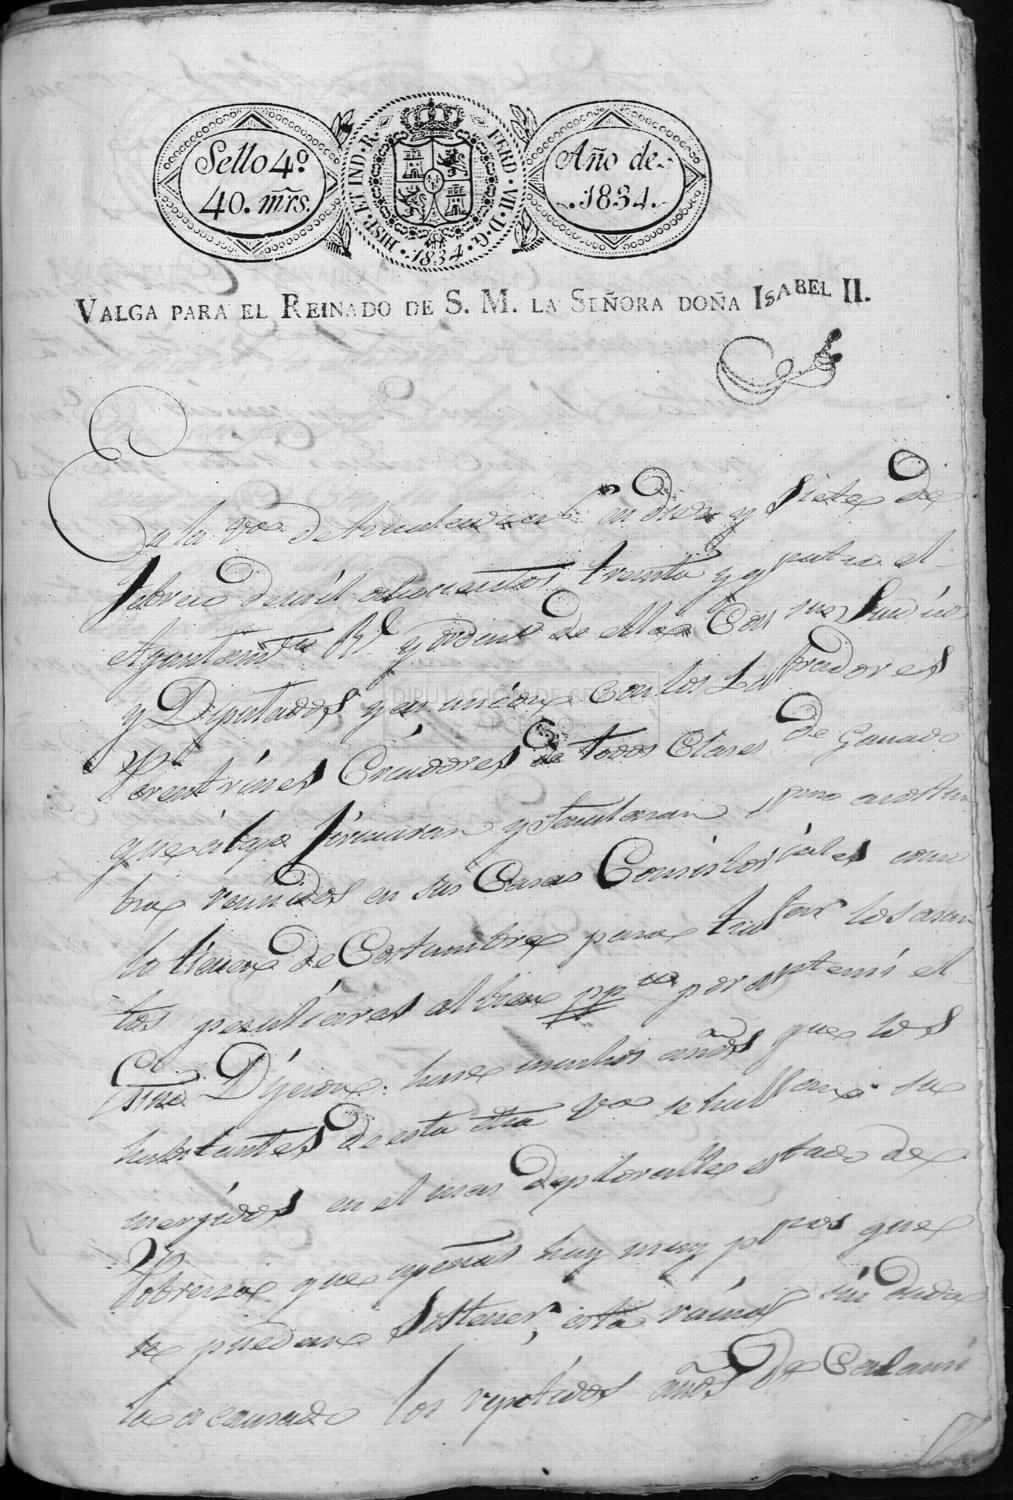 Sello 4.º
40. mrs.
HISP. ET IND. R. FERD. VII. D. G.
1834
Año de
1834.
VALGA PARA EL REINADO DE S. M. LA SEÑORA DOÑA ISABEL II.
DIPUTACIÓN DE
En la v.ª de en diez y siete de
febrero de mil ochocientos treinta y quatro el
Ayuntam.to R.l y ordin.º de ella Con sus Sindico
y Diputados y en unión Con los Labradores
Criadores de todas Clases de Ganado
que abajo firmaran y Señalaran como acostum
bra reunidos en sus Casas Consistoriales como
lo tiene de Costumbre para tratar los asun
tos peculiares al bien pp.co por ante mi el
Esno Dijeron: hace muchos años que los
habitantes de esta dha v.ª se hallan su
merjidos en el mas deplorable estado de
Pobreza que apenas hay muy pocos que
se puedan Sostener, esta ruina sin duda
la a causado los repetidos años de Calami